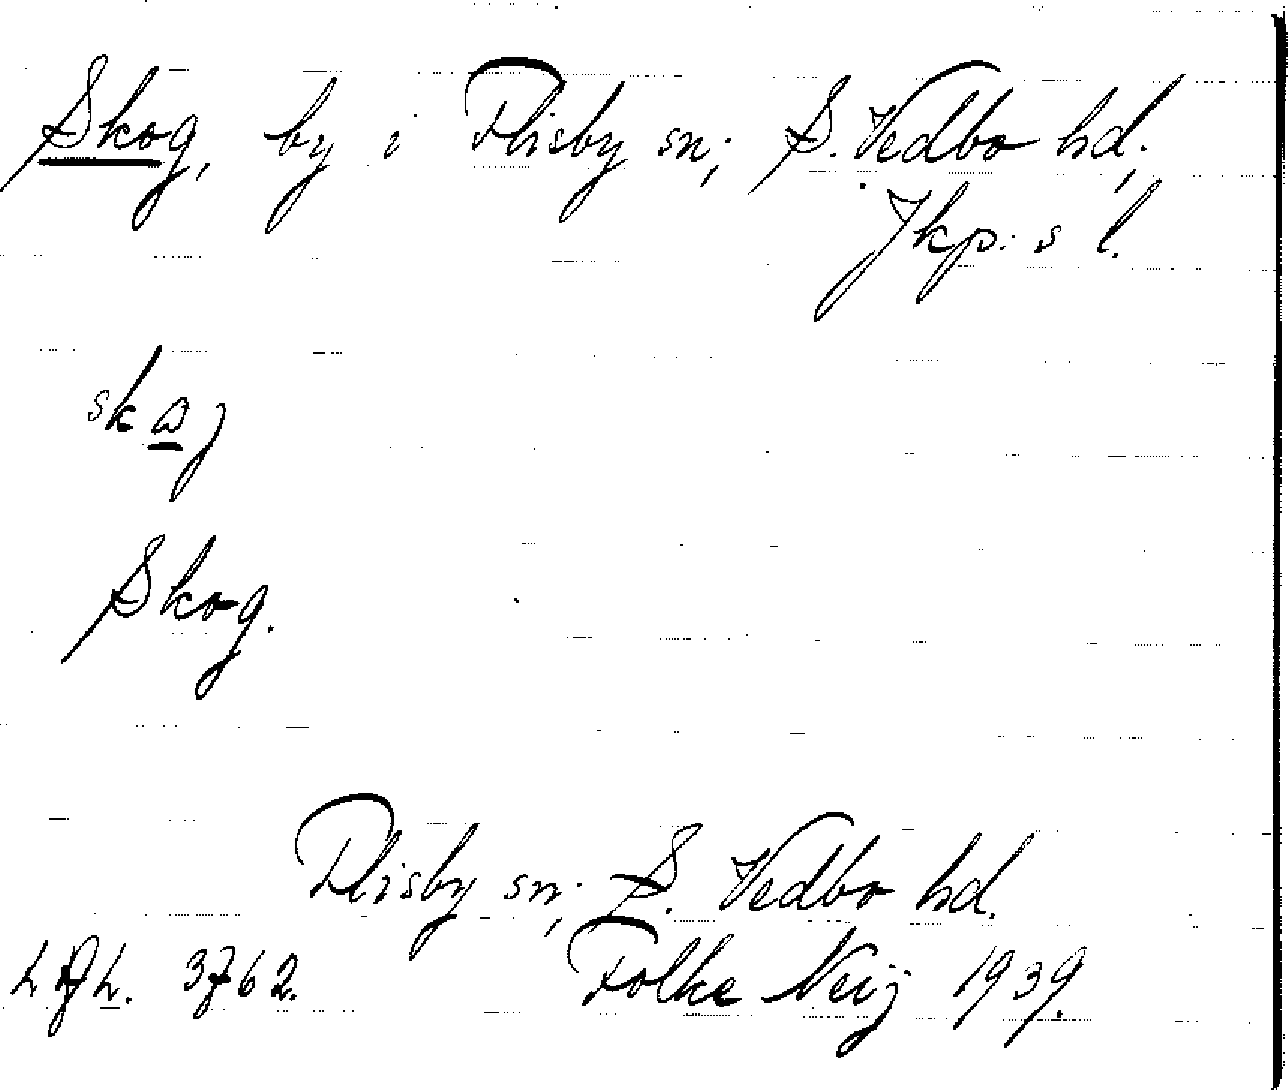 Skog, by i Flisby sn; S. Vedbo hd,
Jkp:s l.
Skog.
Flisby sn; S. Vedbo hd.
3762. Folke Neij 1939.